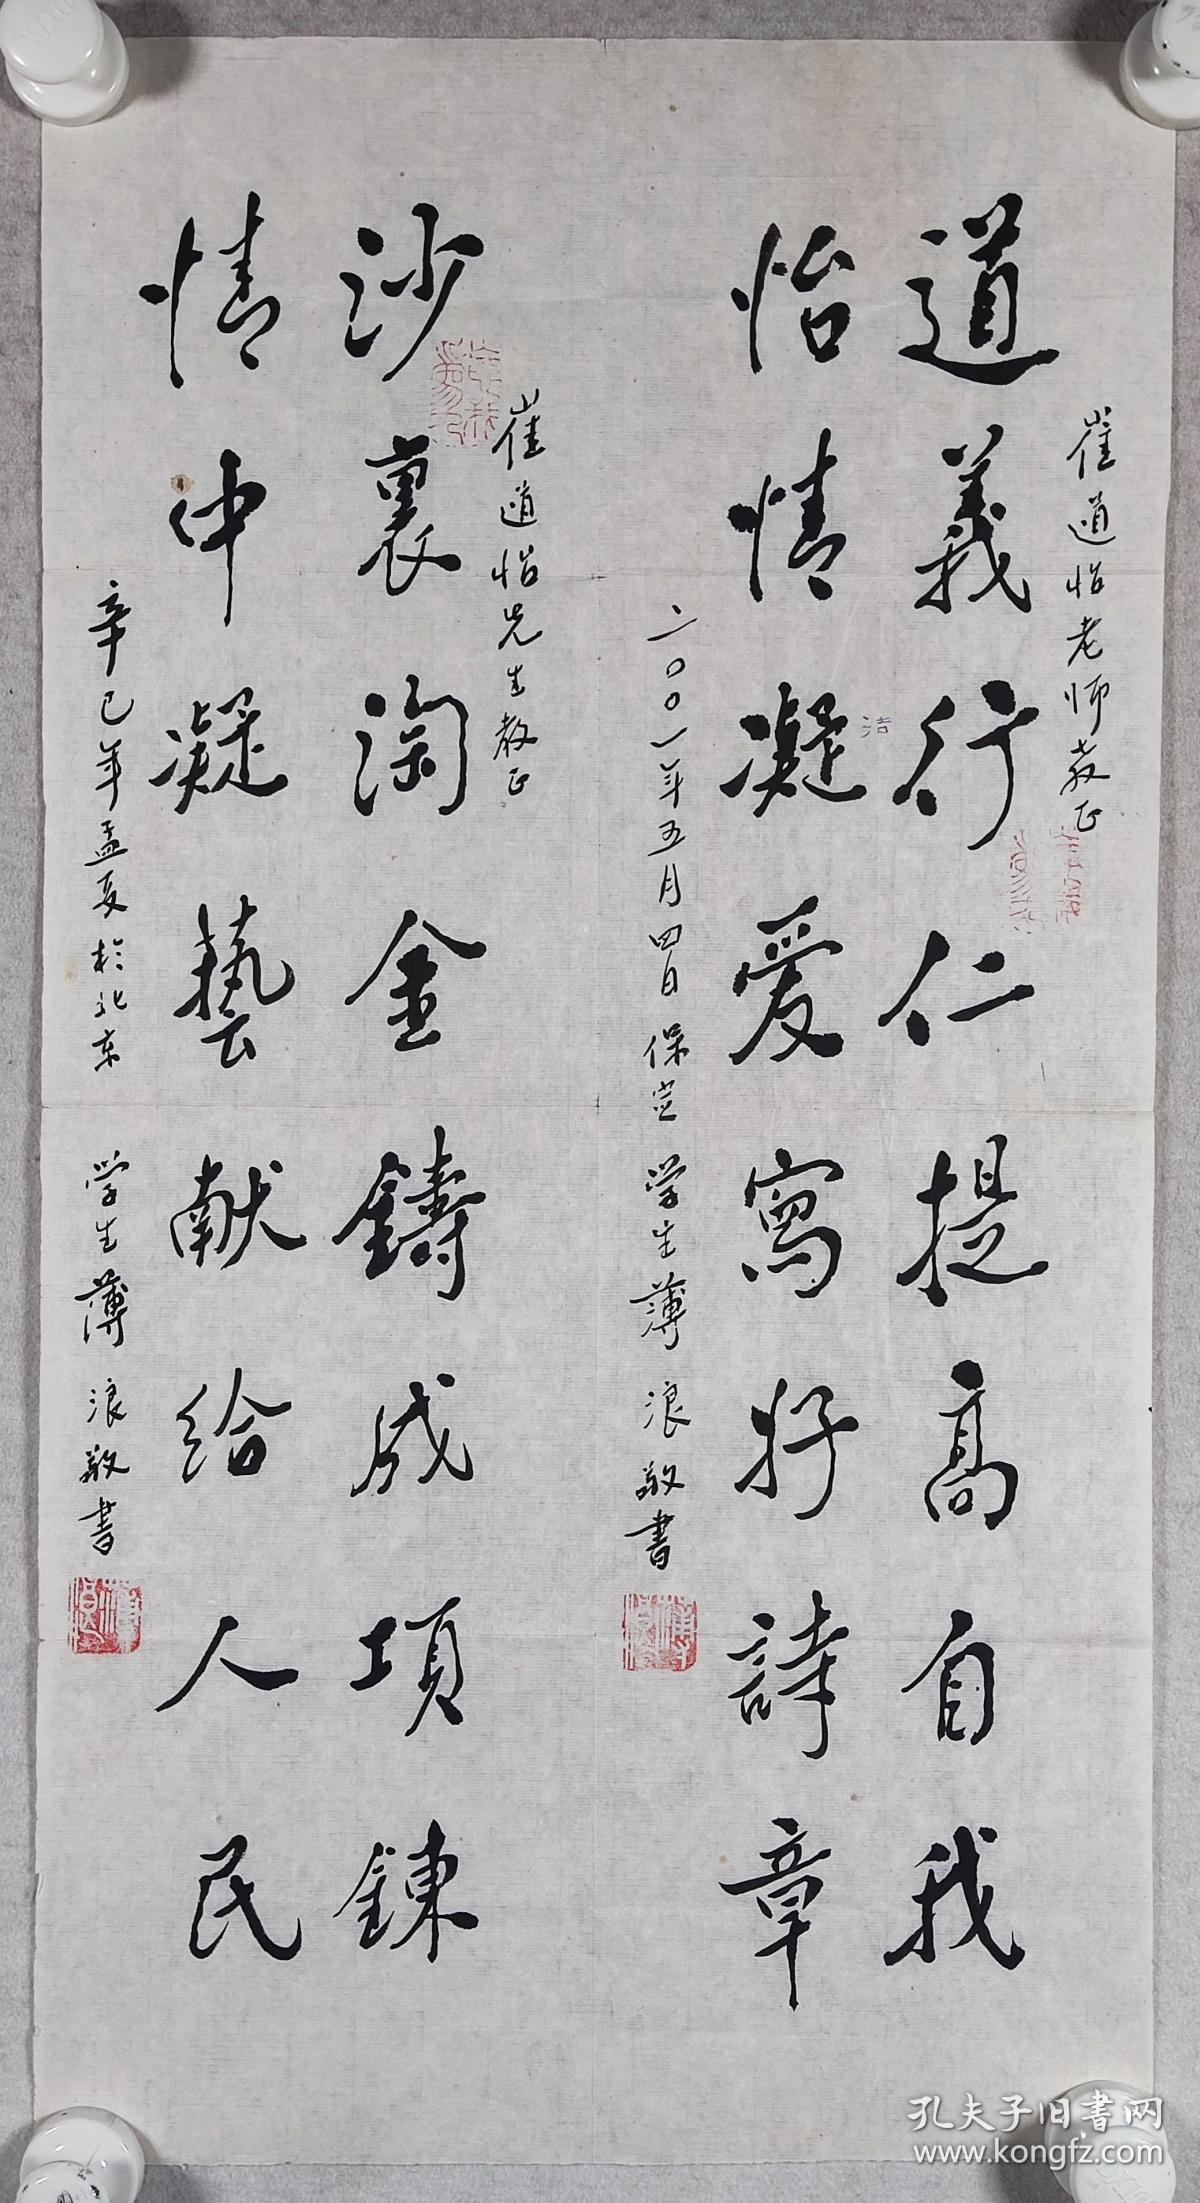 崔道怡老师教正
道義行仁提高自我
怡情凝爱寫好詩章
洁
二〇〇一年五月四日保定学生薄浪敬書
崔道怡先生教正
沙裏淘金鑄成項鍊
情中凝藝献给人民
辛巳年孟夏於北京学生薄浪敬書
孔夫子旧書网
www.kongfz.com